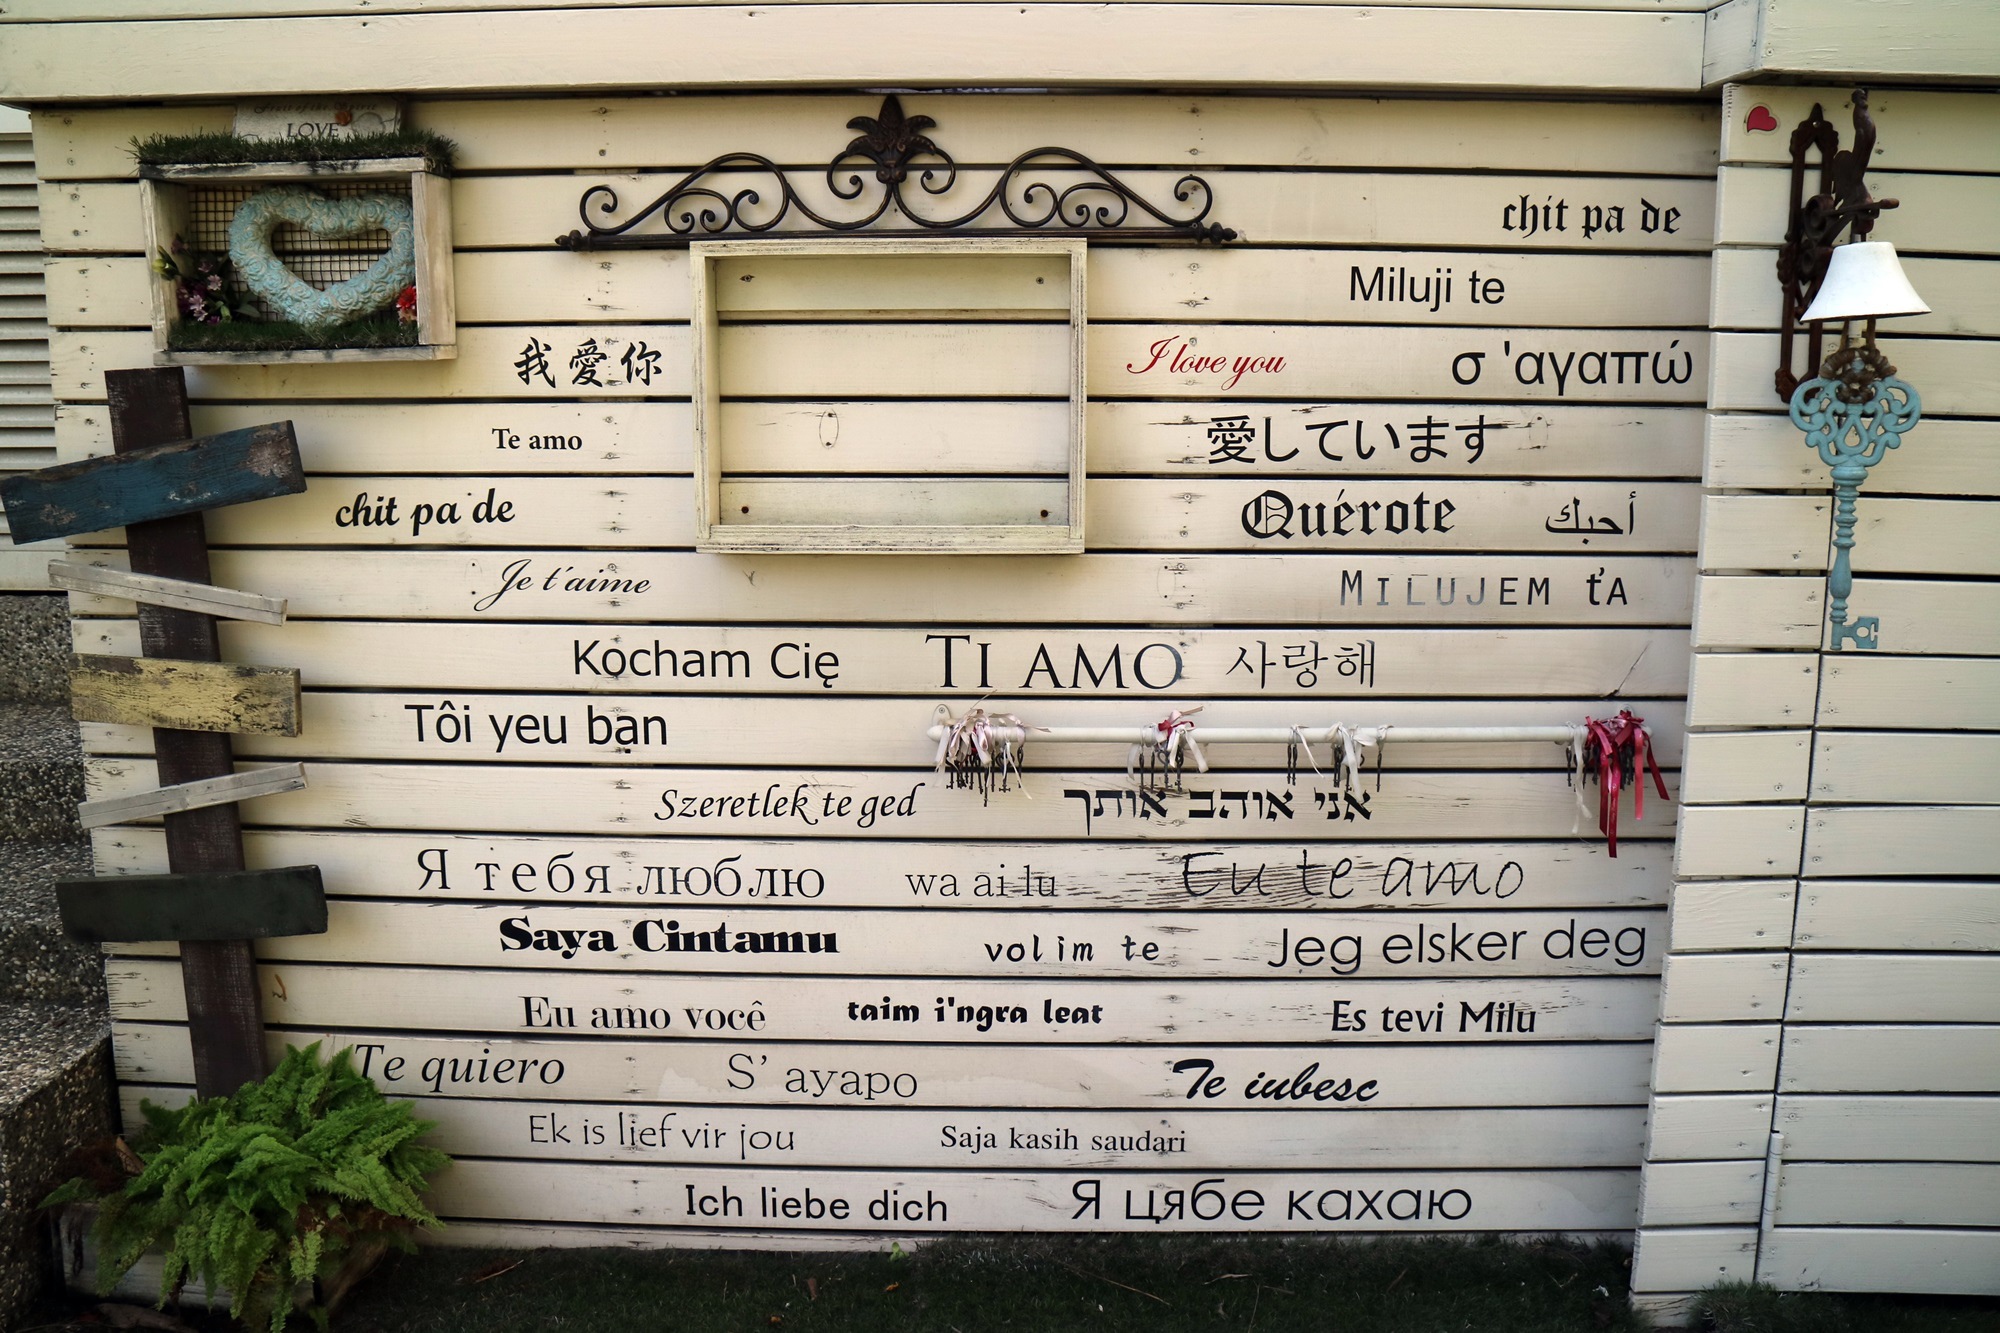 LOVE
chit pa de
Miluji te
我愛你
I love you
σ 'αγαπώ
Te amo
愛しています
chit pa de
Quérote
أحبك
Je t'aime
MILUJEM ťA
Kocham Cię
TI AMO
사랑해
Tôi yeu ban
Szeretlek te ged
אני אוהב אותך
Я тебя люблю
wa ai lu
Eu te amo
Saya Cintamu
volim te
Jeg elsker deg
Eu amo você
taim i'ngra leat
Es tevi Milu
Te quiero
S' ayapo
Te iubesc
Ek is lief vir jou
Saja kasih saudari
Ich liebe dich
Я цябе кахаю